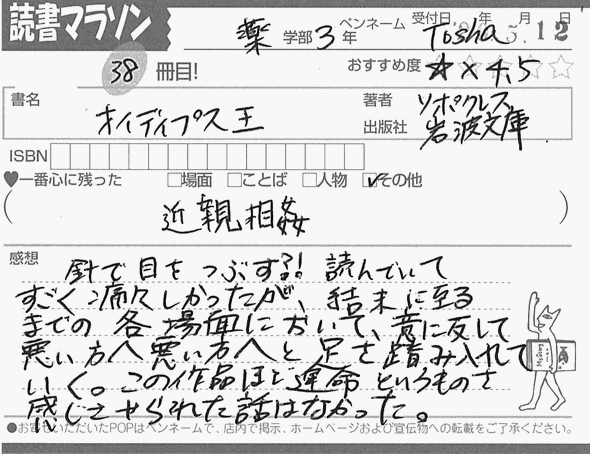 読書マラソン
薬 学部 3 年 ペンネーム Tosha 受付日 年 5 月 12 日
38 冊目! おすすめ度 ☆×4.5
書名 オイディプス王 著者 ソポクレス
出版社 岩波文庫
ISBN
♥一番心に残った □場面 □ことば □人物 ☑その他
( 近親相姦 )
感想 針で目をつぶす?! 読んでいて
すごく痛々しかったが、結末に至る
までの各場面において、意に反して
悪い方へ悪い方へと足を踏み入れて
いく。この作品ほど運命というものを
感じさせられた話はなかった。
●お寄せいただいたPOPはペンネームで、店内で掲示、ホームページおよび宣伝物への転載をご了承ください。